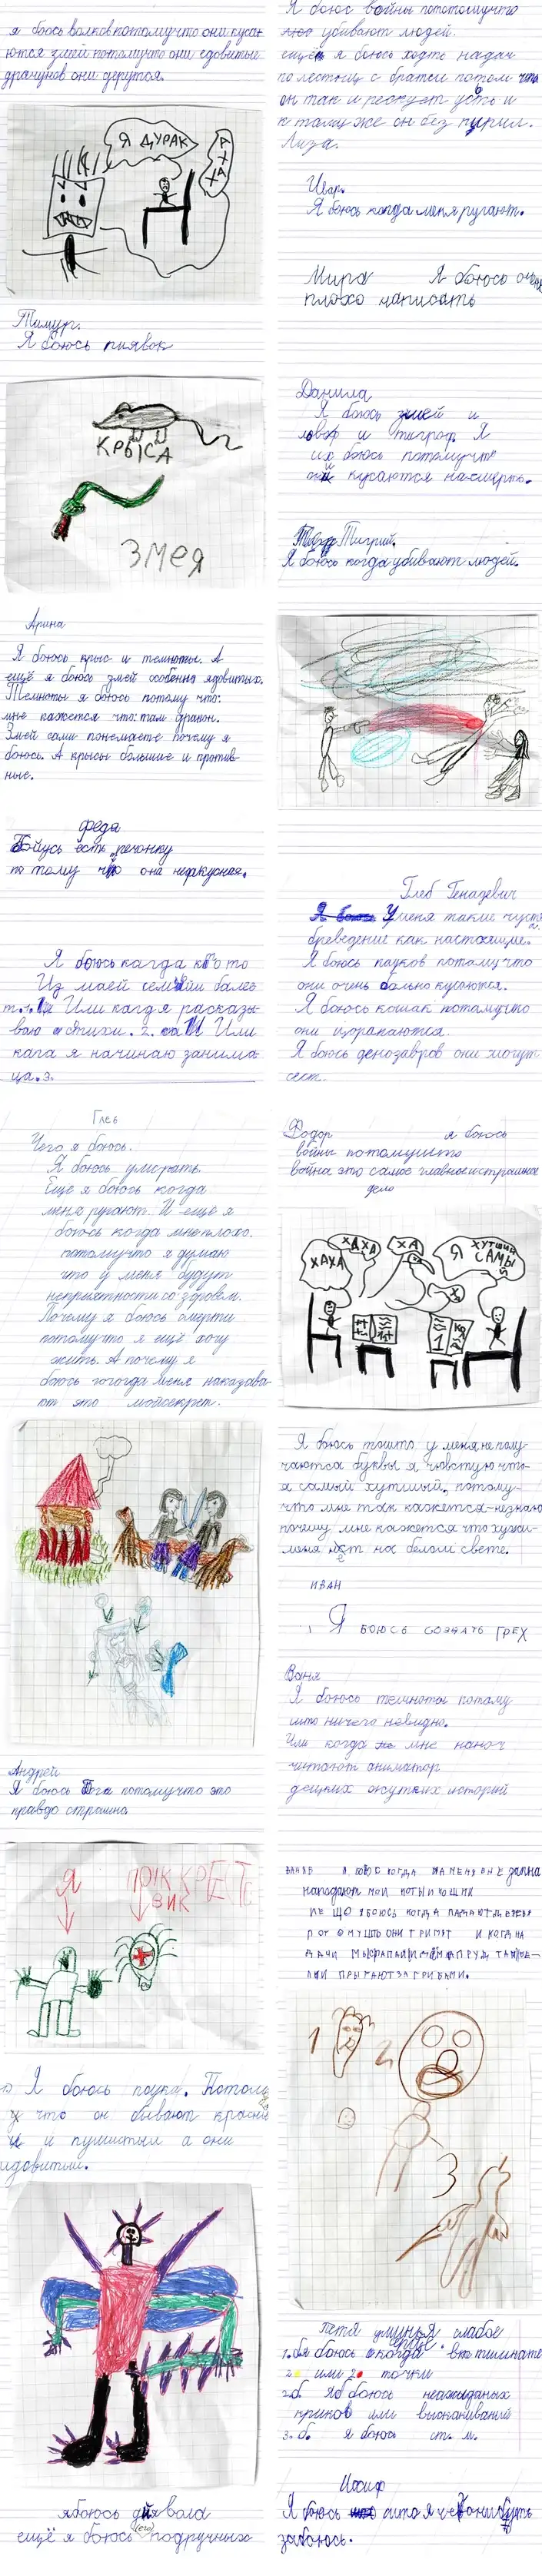 я боюсь волков потомучто они кусаю
ются змей потомучто они едовитые
драчунов они дерутся.
Я ДУРАК
АХАХ
Тимур.
Я боюсь пиявок
КРЫСА
ЗМЕЯ
Арина
Я боюсь крыс и темноты. А
ещё я боюсь змей особенно ядовитых.
Темноты я боюсь потому что:
мне кажется что: там дракон.
Змей сами понемаете почему я
боюсь. А крысы большие и против-
ные.
феда
Бойусь есть печонку
по тому что она нефкусная.
Я боюсь кагда кто то
Из маей семьйи балеет
Или кагдя расказы-
ваю стихи. 2. Или
кага я начинаю занима-
ца. 3.
Глеь
Чего я боюсь.
Я боюсь умерать.
Ещё я боюсь когда
меня ругают. И ещё я
боюсь когда мне плохо.
потомучто я думаю
что у меня будут
неприятности со здоровем.
Почему я боюсь смерти
потомучто я ещё хочу
жить. А почему я
боюсь когогда меня наказыва-
ют это мойсекрет.
Андрей
Я боюсь Бога потомучто это
правдо страшно.
Я
Я боюсь паука. Потому
что он бывают красны
й и пушистыи а они
идовитыи.
ябоюсь дйявола
ещё я боюсь (его) подручных
Я боюс войны потомучто
убивают людей.
ещё я боюсь ходть надач
по лестниц с братси потом что
он так и рескует усть и
к тому же он без пирил.
Лиза.
Ивар.
Я боюсь когда меня ругают.
Мира Я боюсь очень
плохо написать
Данила
Я боюсь змей и
львоф и тигроф. Я
их боюсь потомучто
они кусаются насмерть.
Тигрий.
Я боюсь когда убивают людей.
Глеб Генадевич
У меня такие чуст
бреведение как настоящие.
Я боюсь пауков потамучто
они очень больно кусаются.
Я боюсь кошак потамучто
они царапаются.
Я боюсь денозавров они могут
сест.
Фодор я боюсь
войны потомушто
война это самое главное истрашное
дело
ХАХА
ХАХА
ХА
Я ХУТШИЙ САМЫЙ
Я боюсь тошто у меня не полу-
чаются буквы я чювствую что
я самый хутшый. потому-
что мне так кажется-незнаю
почему мне кажется что хуже
меня нет на белом свете.
ИВАН
Я БОЮСЬ СОЗДАТЬ ГРЕХ
Ваня
Я боюсь темноты потаму
што ничего невидно.
Или когда мне наноч
читают аниматор
децких жутких историй
Я БОЮС КОГДА НА МЕНЯ ВНЕ ЗАПНА
НАПОДАЮТ МОИ КОТЫ И КОШКИ
ИЕ ЩО ЯБОЮСЬ КОГДА ПАДАЮТ ДЕРЕВЯ
ПОТОМУШТО ОНИ ГРИМЯТ И КОГДА НА
ДАЧИ
ПРЫГАЮТ ЗА ГРИБАМИ.
1
2
3
Петя у миня слабое
сердце
1. Я боюсь когда вттыкнате
1 или 2 точки
2.б. Я боюсь неажиданых
криков или выскакиваний
3. б. Я боюсь ст. м.
Иосиф
Я боюсь што я чегонибуть
забоюсь.